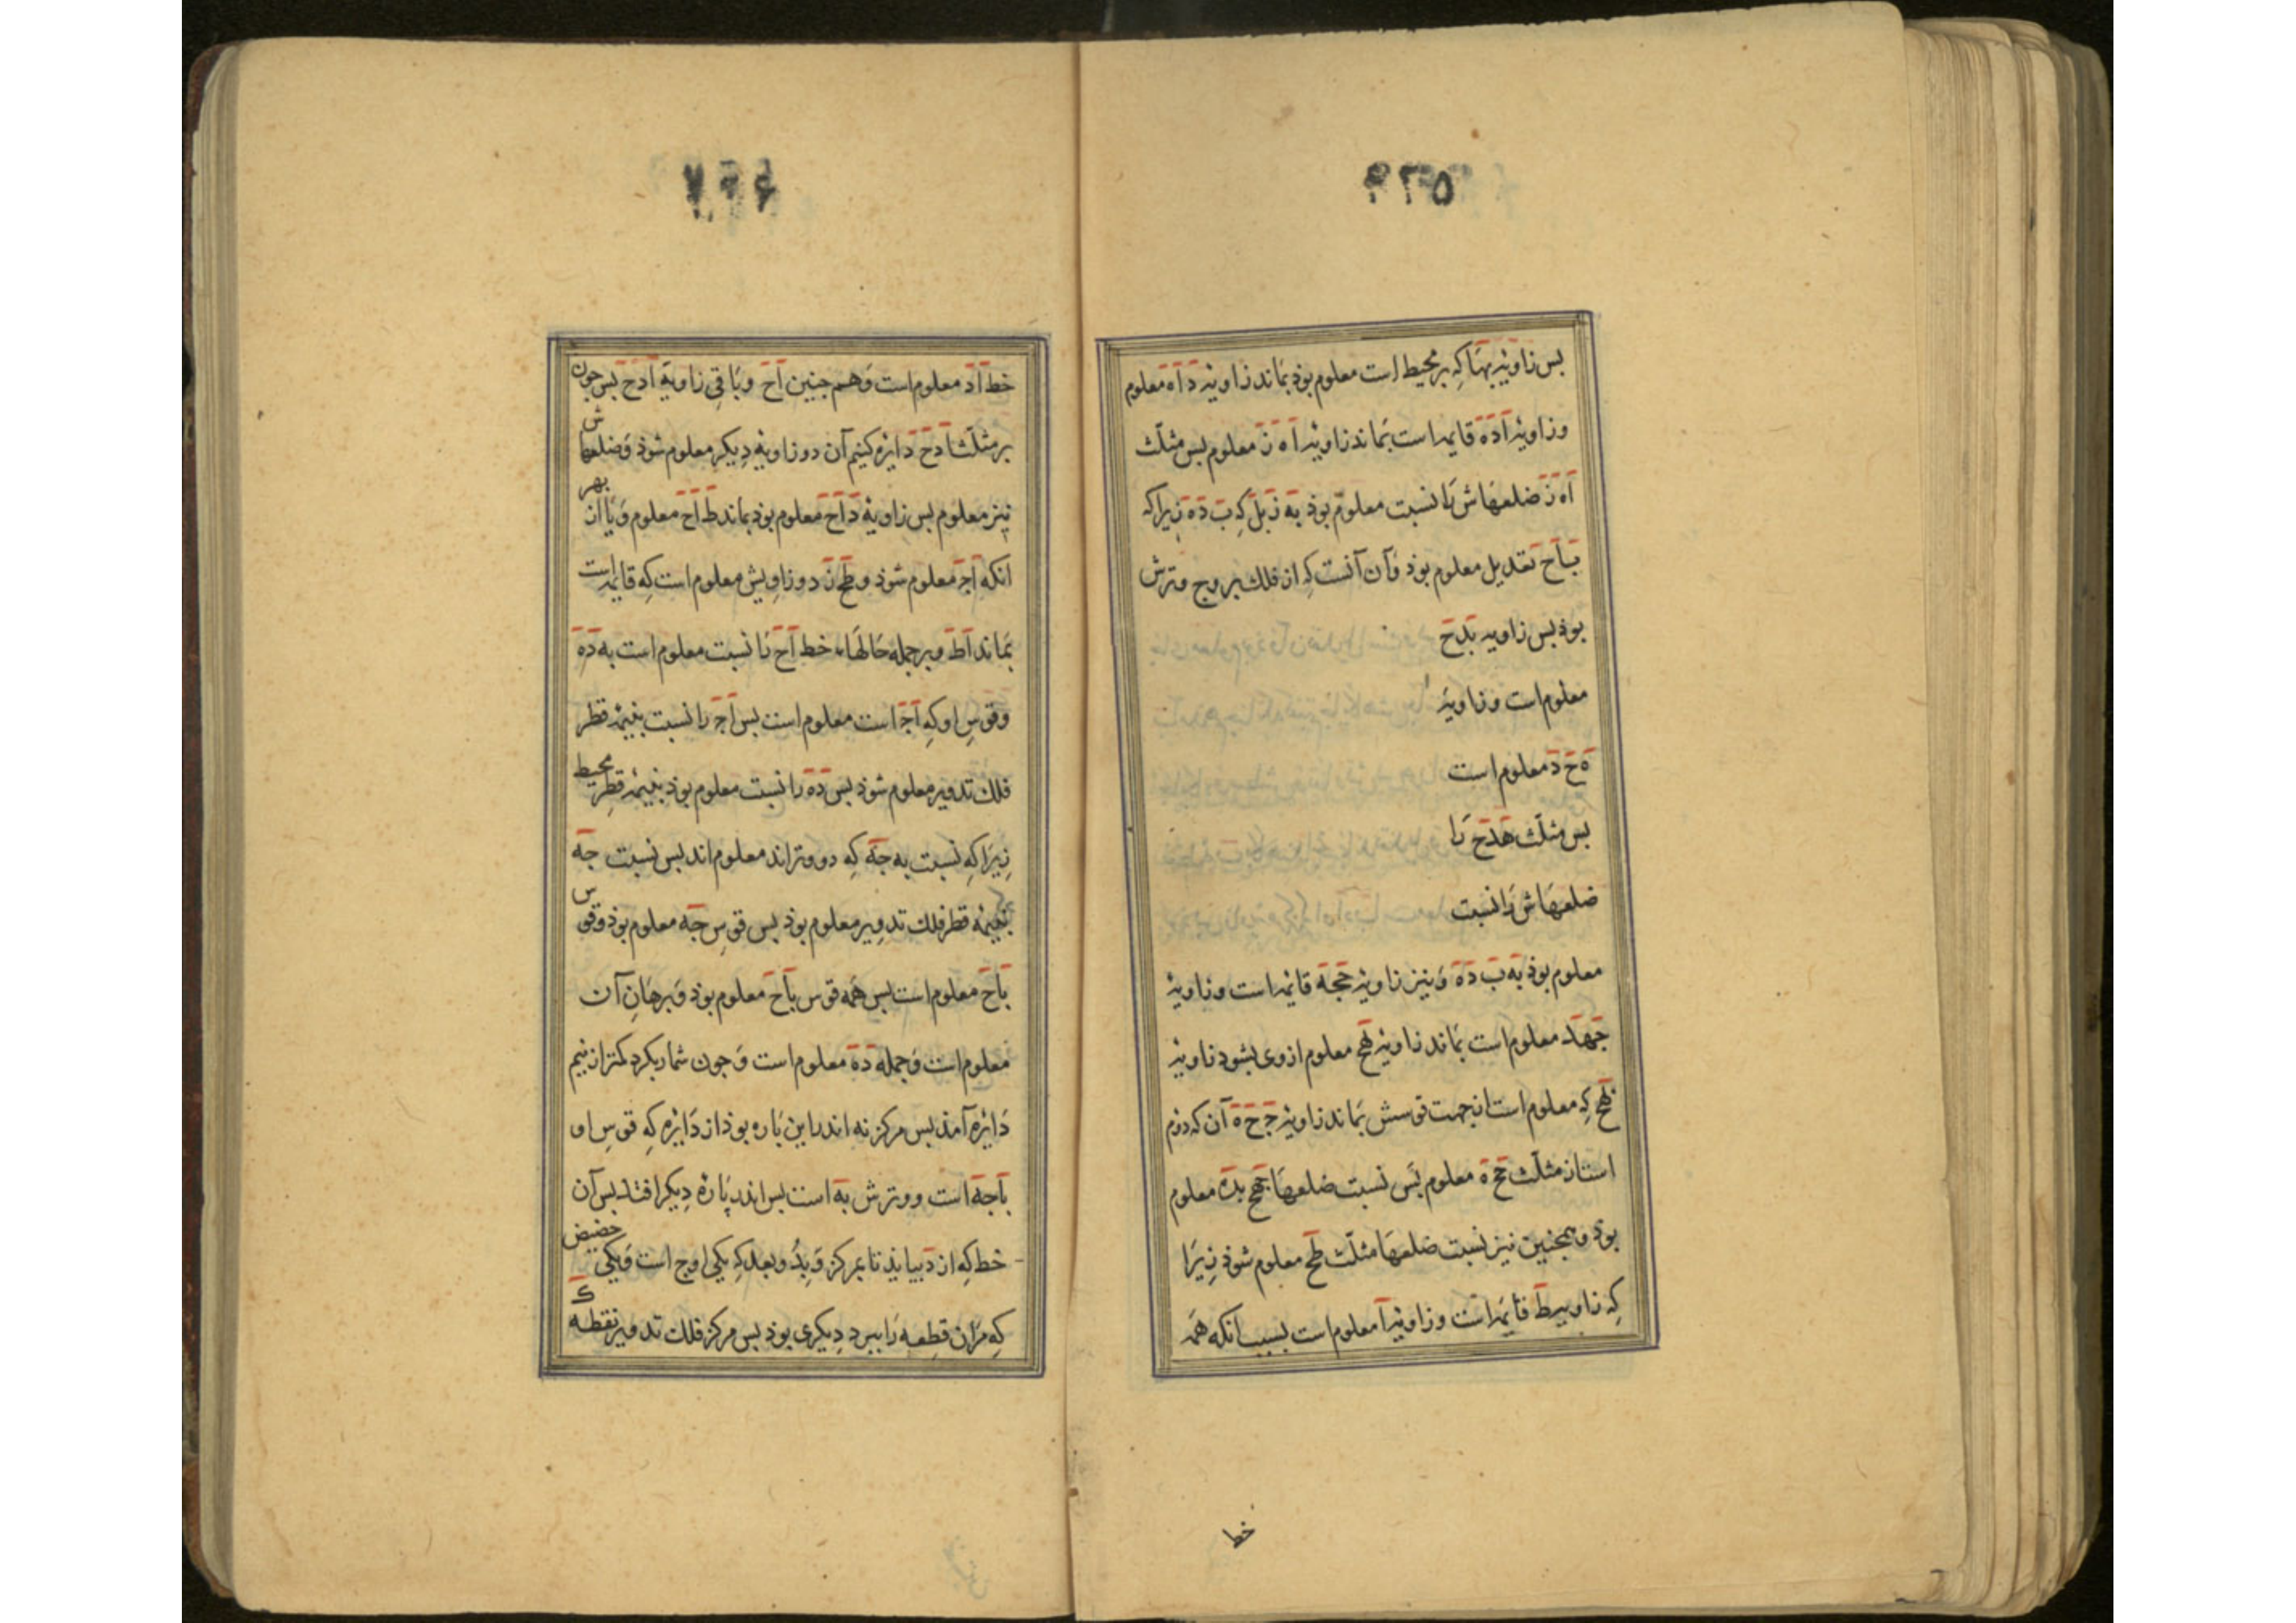 بس زاویهٔ بهآ که بر محیط است معلوم بوذ بماند زاویهٔ داه معلوم
و زاویهٔ اده قایمه است بماند زاویهٔ اه ز معلوم بس مثلّث
اه ز ضلعهاش را نسبت معلوم بوذ به زبل که ب ده زیراکه
باح تعدیل معلوم بوذ و آن آنست که از فلك بروج وترش
بوذ بس زاویه بدح
معلوم است و زاویهٔ
ه ح د معلوم است
بس مثلّث هدح را
ضلعهاش را نسبت
معلوم بوذ به ب ده و نیز زاویهٔ حجه قایمه است و زاویهٔ
جهد معلوم است بماند زاویهٔ معلوم ازوی بشود زاویهٔ
که معلوم است از جهت قوسش بماند زاویهٔ ج ح ه آن که دوم
است از مثلّث ح ه معلوم بس نسبت ضلعها معلوم
بوذ و همجنین نیز نسبت ضلعها مثلّث طح معلوم شوذ زیرا
که زاویه ط قایمه است و زاویهٔ آ معلوم است بسبب انکه همه
خط
خط اد معلوم است و هم جنین اح و باقی زاویه ادح بس جون
بر مثلّث ادح دایره کنیم آن دو زاویهٔ دیکر معلوم شوذ و ضلعهاش
نیز معلوم بس زاویهٔ داح معلوم بوذ بماند ط اح معلوم و یا از بهر
انکه اج معلوم شوذ و دو زاویش معلوم است که قایمه است
بماند اط و بر جمله حالها خط اح را نسبت معلوم است به ده
و قوس او که اج است معلوم است بس اج را نسبت بنیمهٔ قطر
فلك تدویر معلوم شوذ بس ده را نسبت معلوم بوذ بنیمهٔ قطر محیط
زیرا که نسبت به جه که دو وتراند معلوم اند بس نسبت جه
بنیمه قطر فلك تدویر معلوم بوذ بس قوس جه معلوم بوذ و قوس
باح معلوم است بس همه قوس باح معلوم بوذ و برهان آن
معلوم است و جمله ده معلوم است و جون شمار بکرد کمتر از نیم
دایره آمذ بس مرکز نه اندر این باره بوذ از دایره که قوس او
باجه است و وترش به است بس اندر پارهٔ دیکر افتد بس آن
خط که از د بیایذ تا بمرکز و بدُو بعد که یکی اوج است و یکی حضیض
که مران قطعه را ببرد دیکری بوذ بس مرکز فلك تدویر نقطه ک